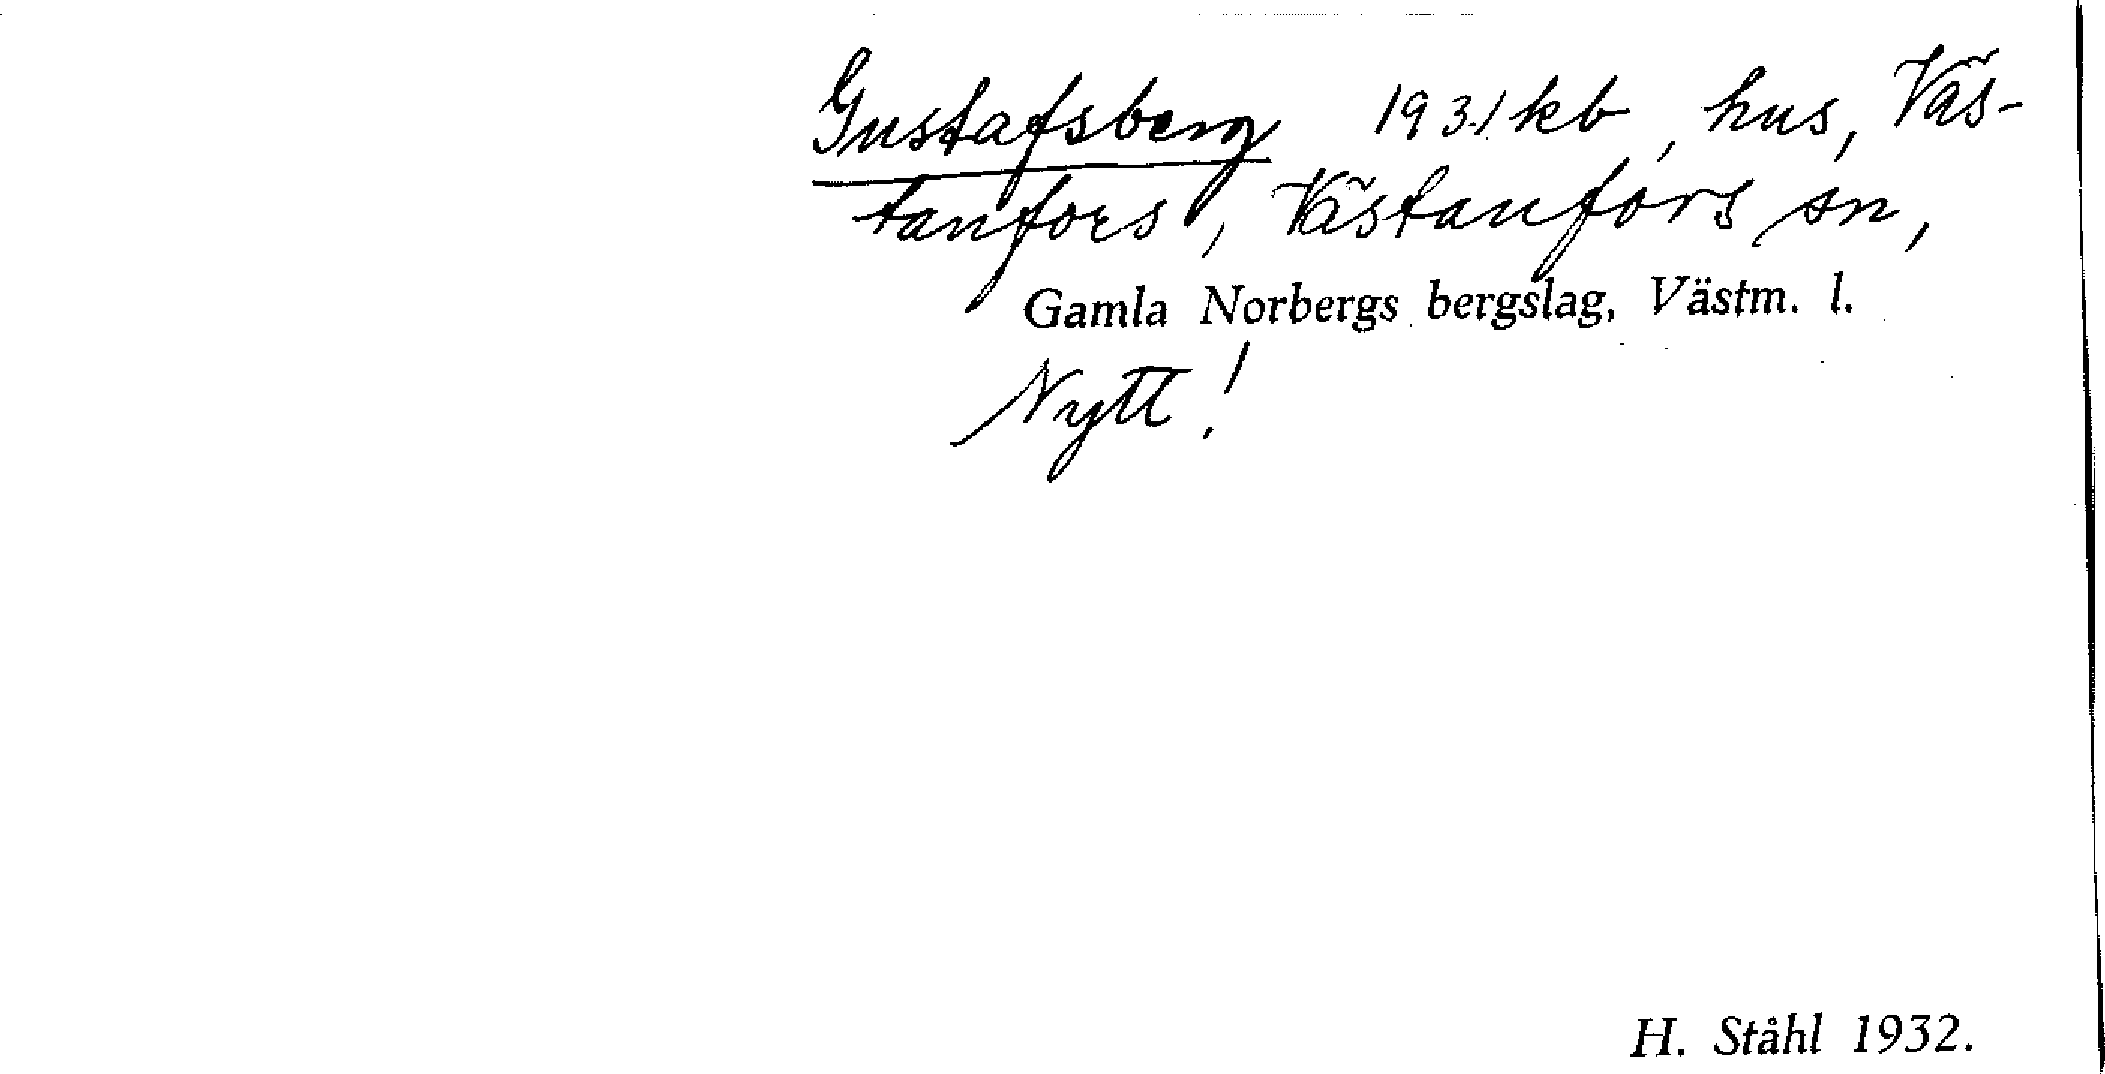 Gustafsberg 1931 kb, hus, Väs-
tanfors, Västanfors sn,
Gamla Norbergs bergslag, Västm. l.
Nytt!
H. Ståhl 1932.